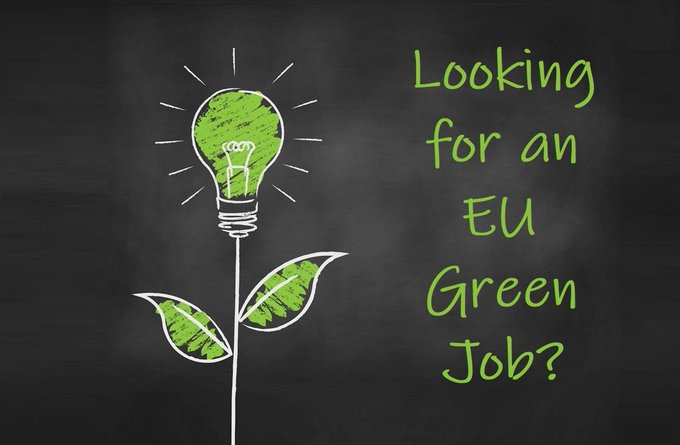 Looking
for an
EU
Green
Job?